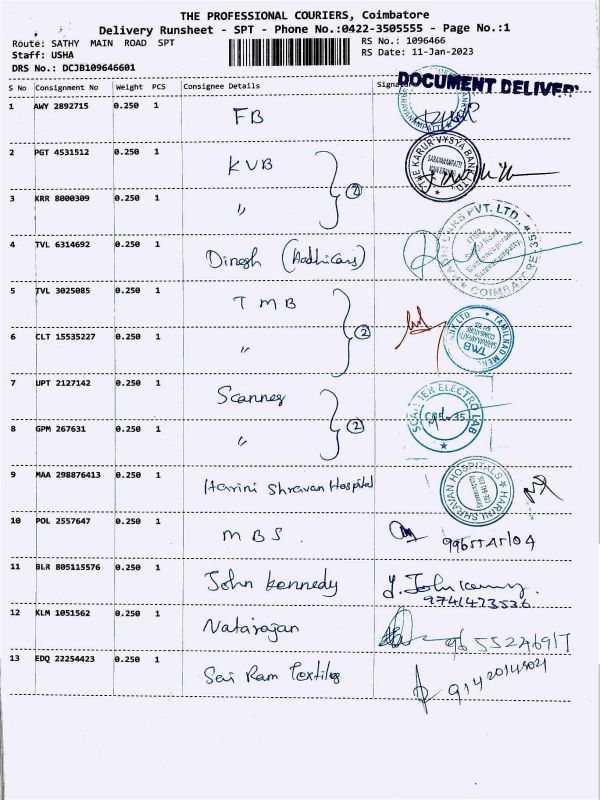 THE PROFESSIONAL COURIERS, Coimbatore
Delivery Runsheet - SPT - Phone No.:0422-3505555 - Page No.:1
Route: SATHY MAIN ROAD SPT
RS No.: 1096466
Staff: USHA
RS Date: 11-Jan-2023
DRS No.: DCJB109646601
DOCUMENT DELIVER
S No Consignment No Weight PCS Consignee Details
1 AWY 2892715 0.250 1 FB
2 PGT 4531512 0.250 1 KVB
THE KARUR VYSYA BANK LTD.
2
3 KRR 8000309 0.250 1 "
4 TVL 6314692 0.250 1 Dinesh
PVT. LTD.,
COIMBATORE-35
5 TVL 3025085 0.250 1 TMB
2
TMB
6 CLT 15535227 0.250 1 "
7 UPT 2127142 0.250 1 Scanner
2
SCANNER ELECTRO LAB
CBE-35
8 GPM 267631 0.250 1 "
9 MAA 298876413 0.250 1 Harini Shravan Hospital
HARINI SHRAVAN HOSPITALS
10 POL 2557647 0.250 1 MBS.
11 BLR 805115576 0.250 1 John kennedy
9741473536
12 KLM 1051562 0.250 1 Natarajan
9655246917
13 EDQ 22254423 0.250 1 Sai Ram Textiles